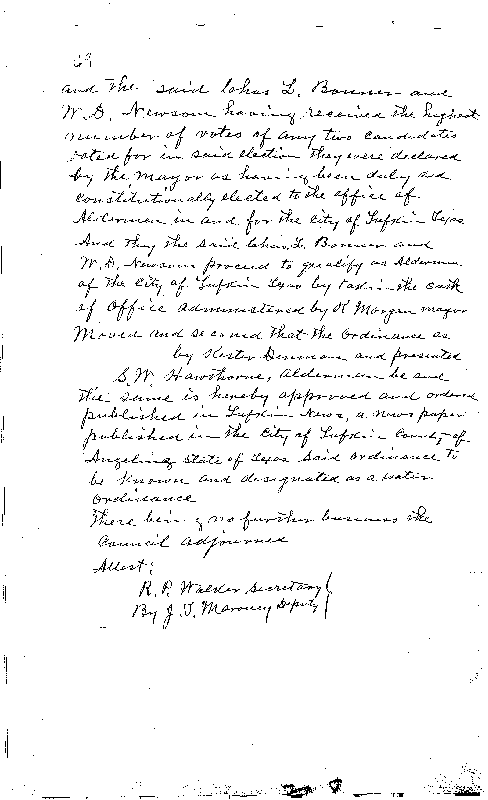 69
and the said Lohas L. Bonner and
W. D. Newsom having received the highest
number of votes of any two candidates
voted for in said election they were declared
by the Mayor as having been duly and
constitutionally elected to the office of
Aldermen in and for the City of Lufkin Texas
And they the said L. Bonner and
W. D. Newsom proceed to qualify as Aldermen
of the City of Lufkin Texas by taking the oath
of Office administered by K Morgan mayor
Moved and second that the Ordinance as
by Denman and presented
S. W. Hawthorne, Aldermen be and
the same is hereby approved and ordered
published in Lufkin News, a news paper
published in the City of Lufkin County of
Angelina State of Texas Said Ordinance to
be known and designated as a water
Ordinance
There being no further business the
Council adjourned
Attest:
R. P. Walder Secretary
By J. T. Maroney Deputy